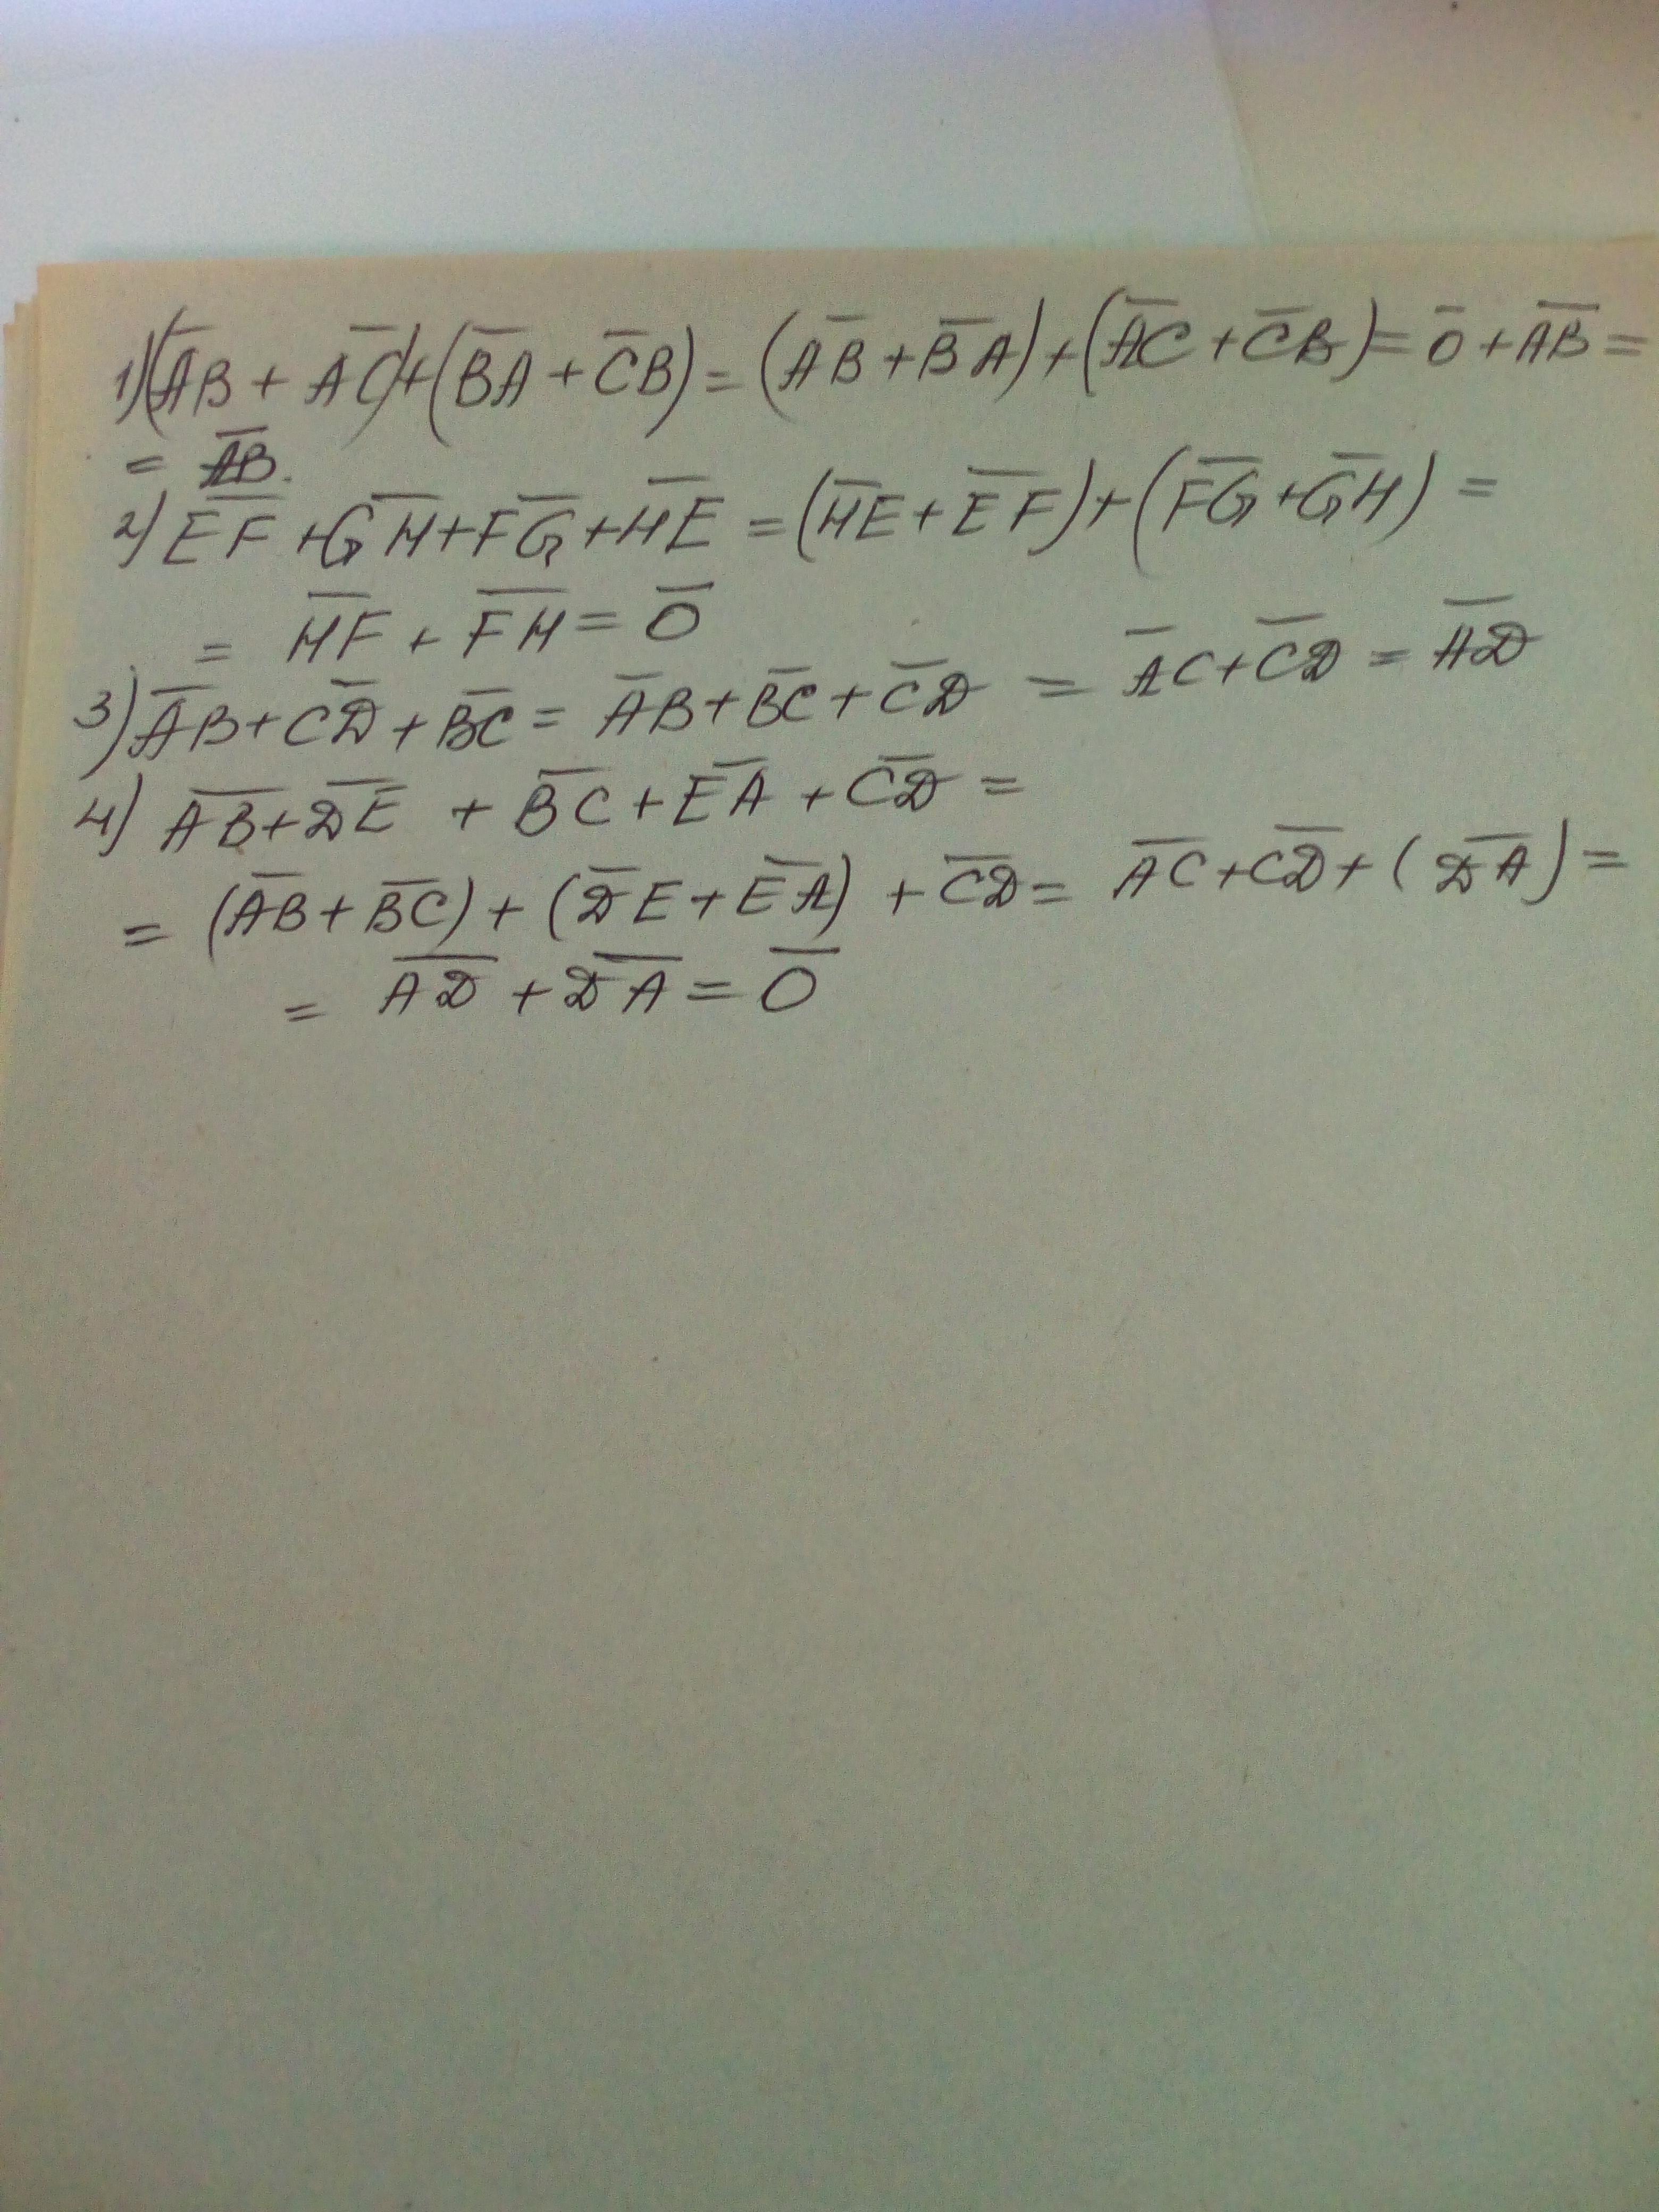 1) (A̅B̅ + A̅C̅) + (B̅A̅ + C̅B̅) = (A̅B̅ + B̅A̅) + (A̅C̅ + C̅B̅) = 0̅ + A̅B̅ =
= A̅B̅.
2) E̅F̅ + G̅H̅ + F̅G̅ + H̅E̅ = (H̅E̅ + E̅F̅) + (F̅G̅ + G̅H̅) =
= H̅F̅ + F̅H̅ = 0̅
3) A̅B̅ + C̅D̅ + B̅C̅ = A̅B̅ + B̅C̅ + C̅D̅ = A̅C̅ + C̅D̅ = A̅D̅
4) A̅B̅ + D̅E̅ + B̅C̅ + E̅A̅ + C̅D̅ =
= (A̅B̅ + B̅C̅) + (D̅E̅ + E̅A̅) + C̅D̅ = A̅C̅ + C̅D̅ + (D̅A̅) =
= A̅D̅ + D̅A̅ = 0̅